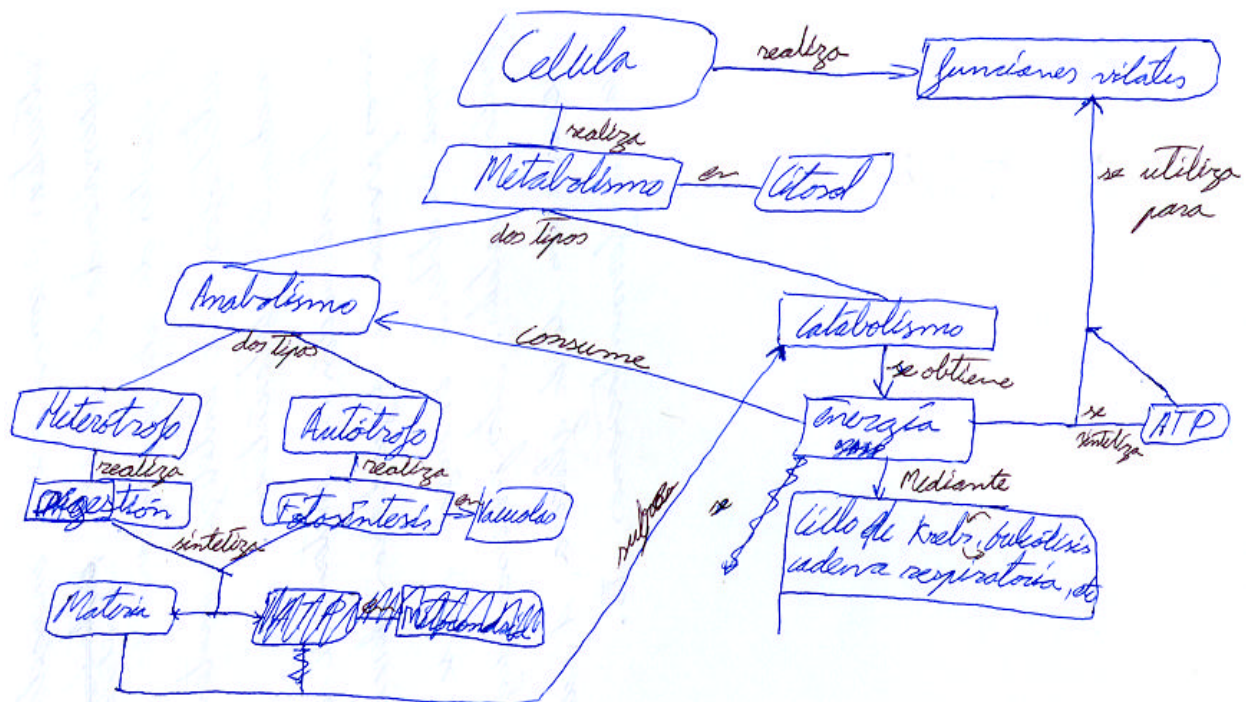 Celula
realiza
funciones vitales
realiza
Metabolismo
en
Citosol
se utiliza
para
dos tipos
Anabolismo
Catabolismo
consume
dos tipos
se obtiene
Heterótrofo
Autótrofo
energía
se
sintetiza
ATP
realiza
realiza
Mediante
Digestión
Fotosíntesis
en
Vacuolas
se
Ciclo de Krebs,
cadena respiratoria, etc
sintetiza
Materia
ATP
en
Mitocondria